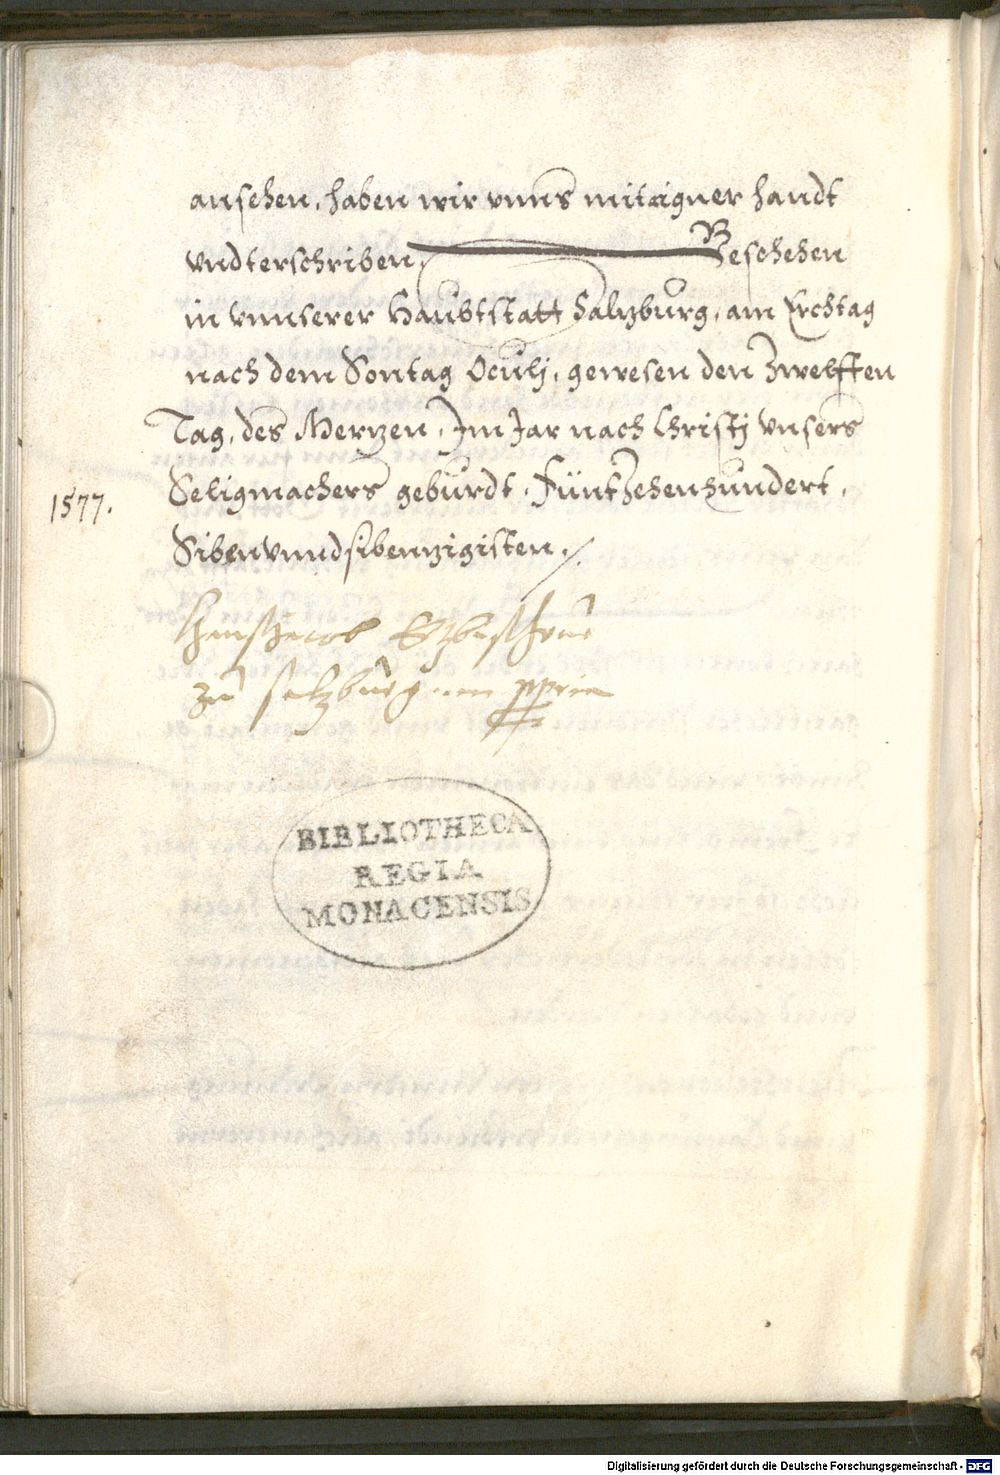 ansehen, haben wir vnns mit aigner handt
vndterschriben. Beschehen
in vnnserer Haubtstatt Salzburg, am Erchtag
nach dem Sontag Oculj, gewesen den Zwelfften
Tag, des Mertzen, Im Jar nach Christj vnsers
1577.
Seligmachers geburdt, Füntzehenhundert,
Sibenvnndsibenzigisten ./.
Hans Jacob Ertzbischoue
zu Salzburg mppria
BIBLIOTHECA
REGIA
MONACENSIS
Digitalisierung gefördert durch die Deutsche Forschungsgemeinschaft - DFG